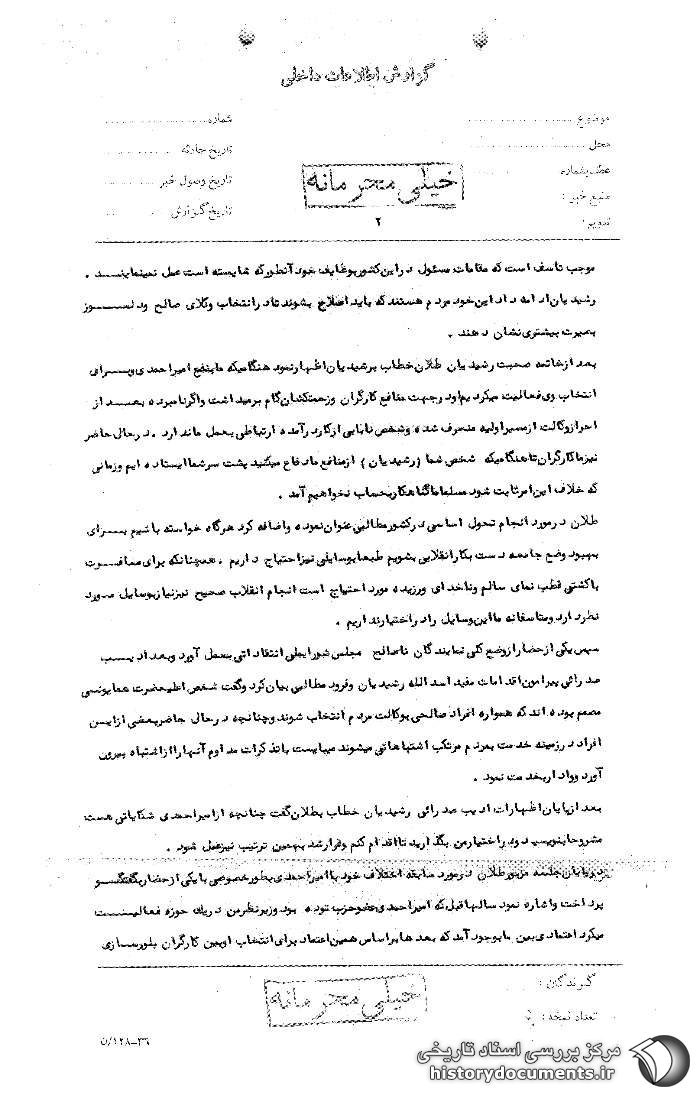 گزارش اطلاعات داخلی
موضوع
شماره
محل
تاریخ حادثه
عطف بشماره
تاریخ وصول خبر
خیلی محرمانه
منبع خبر :
تاریخ گزارش
تقویم :
۲
موجب تاسف است که مقامات مسئول در این کشور بوظایف خود آنطور که شایسته است عمل نمینمایند .
رشیدیان ادامه داد این خود مردم هستند که باید اصلاح بشوند تا در انتخاب وکلای صالح و دلسوز
بصیرت بیشتری نشان دهند .
بعد از خاتمه صحبت رشیدیان طلان خطاب برشیدیان اظهار نمود هنگامیکه ما بنفع امیراحمدی و برای
انتخاب وی فعالیت میکردیم او در جهت منافع کارگران و زحمتکشان گام برمیداشت و اگر نامبرده بعد از
احراز وکالت از مسیر اولیه منحرف شده و شخص نابابی از کار درآمده ارتباطی بعمل ما ندارد . در حال حاضر
نیز ما کارگران تا هنگامیکه شخص شما ( رشیدیان ) از منافع ما دفاع میکنید پشت سر شما ایستاده ایم و زمانی
که خلاف این امر ثابت شود مسلما ما گناهکار بحساب نخواهیم آمد .
طلان در مورد انجام تحول اساسی در کشور مطالبی عنوان نموده و اضافه کرد هرگاه خواسته باشیم برای
بهبود وضع جامعه دست بکار انقلابی بشویم طبعا بوسایلی نیز احتیاج داریم ، همچنانکه برای مسافرت
با کشتی قطب نمای سالم و ناخدای ورزیده مورد احتیاج است انجام انقلاب صحیح نیز نیاز بوسایل مورد
نظر دارد و متاسفانه ما این وسایل را در اختیار نداریم .
سپس یکی از حضار از وضع کلی نمایندگان ناصالح مجلس شورایملی انتقاداتی بعمل آورد و بعد ادیب
صدرائی پیرامون اقدامات مفید اسدالله رشیدیان و فرود مطالبی بیان کرد و گفت شخص اعلیحضرت همایونی
مصمم بوده اند که همواره افراد صالحی بوکالت مردم انتخاب شوند و چنانچه در حال حاضر بعضی از این
افراد در زمینه خدمت بمردم مرتکب اشتباهاتی میشوند میبایست با تذکرات مداوم آنها را از اشتباه بیرون
آورد و وادار بخدمت نمود .
بعد از پایان اظهارات ادیب صدرائی رشیدیان خطاب بطلان گفت چنانچه از امیراحمدی شکایاتی هست
مشروحا بنویسید و در اختیار من بگذارید تا اقدام کنم و قرار شد بهمین ترتیب نیز عمل شود .
در پایان جلسه مزبور طلان در مورد سابقه اختلاف خود با امیراحمدی بطور خصوصی با یکی از حضار بگفتگو
پرداخت و اشاره نمود سالها قبل که امیراحمدی عضو حزب توده بود و زیر نظر من در یک حوزه فعالیت
میکرد اعتمادی بین ما بوجود آمد که بعدها بر اساس همین اعتماد برای انتخاب اوبین کارگران بلورسازی
گیرندگان :
خیلی محرمانه
تعداد نسخه :
۳۶-۱۲۸/ن
مرکز بررسی اسناد تاریخی
historydocuments.ir